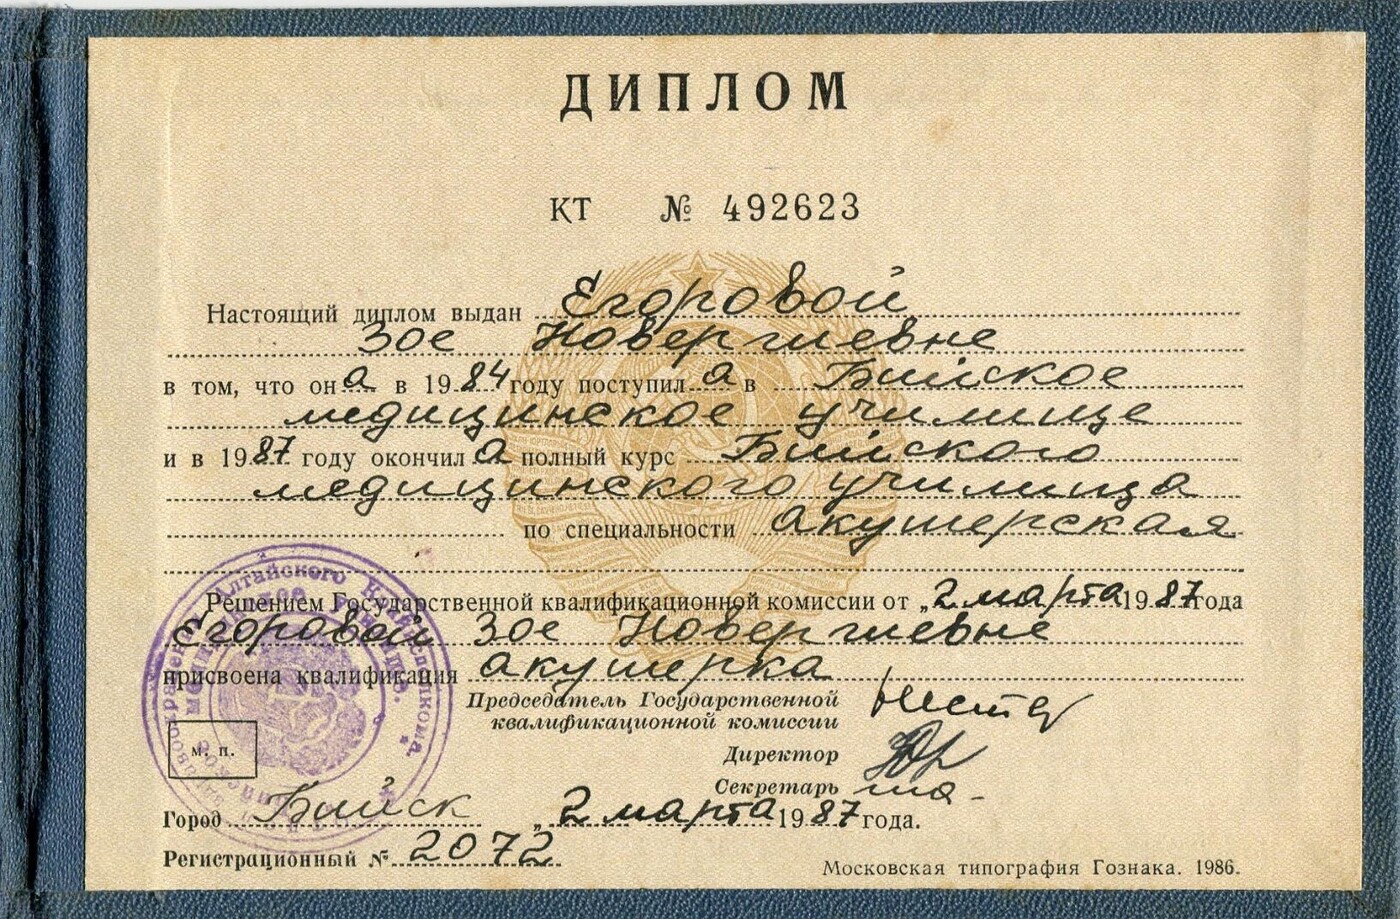 ДИПЛОМ
КТ № 492623
Настоящий диплом выдан Егоровой
Зое Новергиевне
в том, что она в 1984 году поступила в Бийское
медицинское училище
и в 1987 году окончила полный курс Бийского
медицинского училища
по специальности акушерская
Решением Государственной квалификационной комиссии от „2 марта 1987 года
Егоровой Зое Новергиевне
присвоена квалификация акушерка
Председатель Государственной
квалификационной комиссии
Директор
Секретарь
м. п.
Город Бийск „2 марта 1987 года.
Регистрационный № 2072
Московская типография Гознака. 1986.